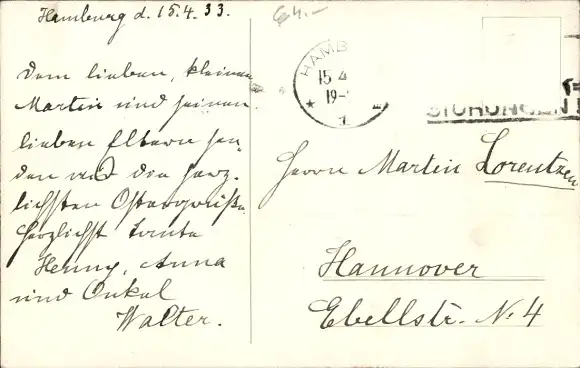 Hamburg d. 15.4.33.
64.-
Dem lieben, kleinen
Martin und seinen
lieben Eltern sen-
den wir die herz-
lichsten Ostergrüße.
Herzlichst Tante
Henny, Anna
und Onkel
Walter.
HAMB
15.4
19-
*
1
Herrn Martin Lorentzen
Hannover
Ebellstr. No 4